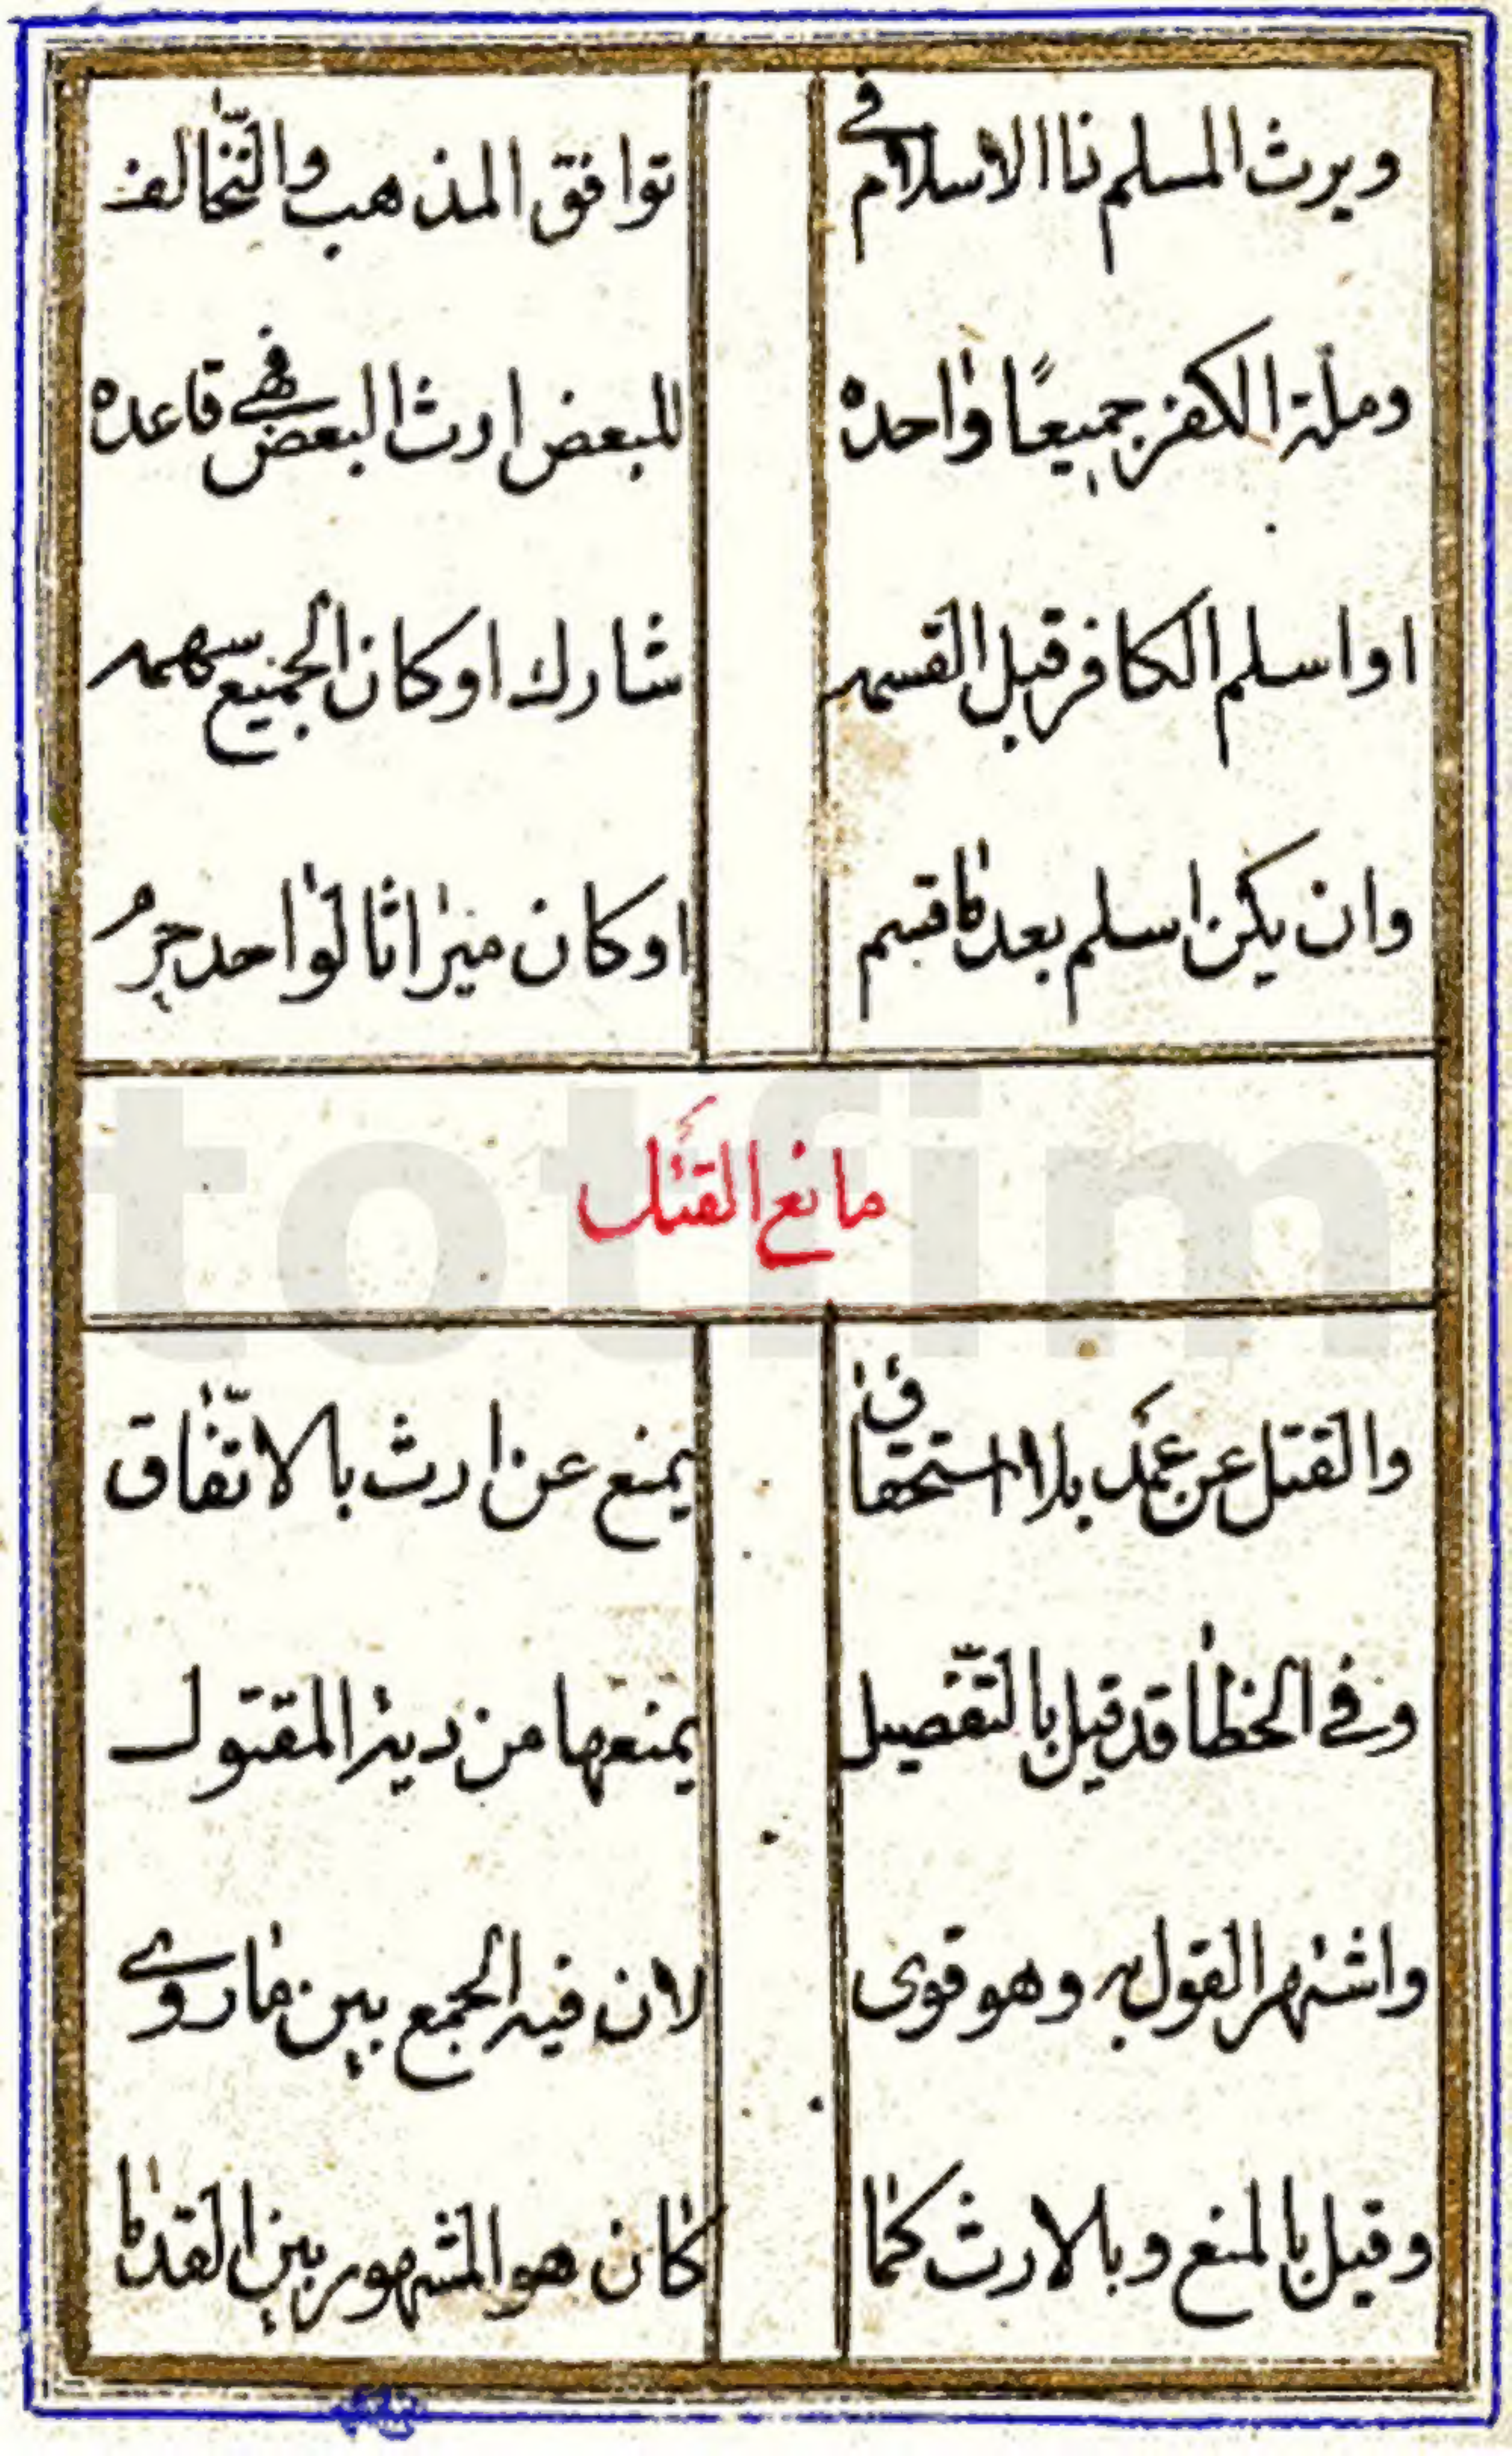 ويرث المسلم نا الاسلام في توافق المذهب والتخالف
وملة الكفر جميعًا واحده للبعض ارث البعض فهي قاعده
او اسلم الكافر قبل القسمه شارك او كان الجميع سهمه
وان يكن اسلم بعد ما قسم او كان ميراثا لواحد حرم
مانع القتل
والقتل عن عمد بلا استحقاق يمنع عن ارث بالاتّفاق
وفي الخطا قد قيل بالتّفصيل يمنعها من دية المقتول
واشتهر القول به وهو قوى لان فيه الجمع بين ما روي
وقيل بالمنع وبالارث كما كان هو المشهور بين القدما
totfim